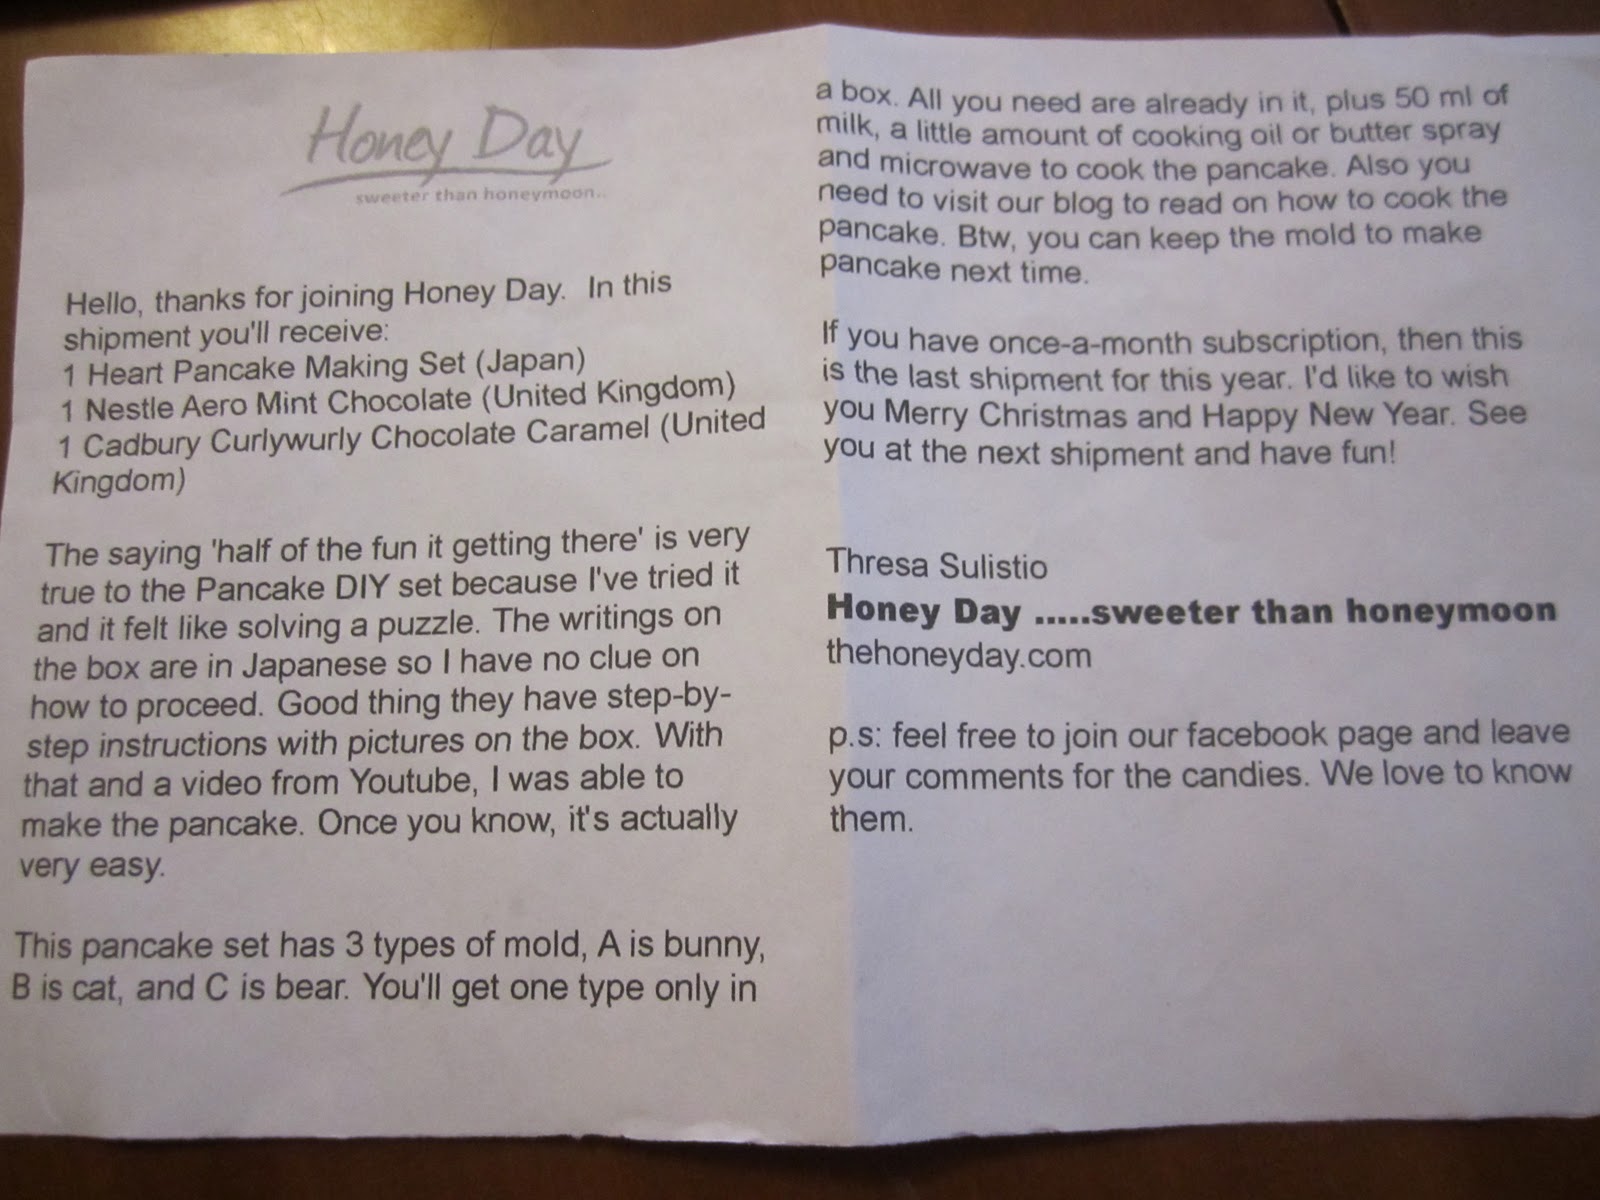 Honey Day
sweeter than honeymoon..
Hello, thanks for joining Honey Day. In this
shipment you'll receive:
1 Heart Pancake Making Set (Japan)
1 Nestle Aero Mint Chocolate (United Kingdom)
1 Cadbury Curlywurly Chocolate Caramel (United
Kingdom)
The saying 'half of the fun it getting there' is very
true to the Pancake DIY set because I've tried it
and it felt like solving a puzzle. The writings on
the box are in Japanese so I have no clue on
how to proceed. Good thing they have step-by-
step instructions with pictures on the box. With
that and a video from Youtube, I was able to
make the pancake. Once you know, it's actually
very easy.
This pancake set has 3 types of mold, A is bunny,
B is cat, and C is bear. You'll get one type only in
a box. All you need are already in it, plus 50 ml of
milk, a little amount of cooking oil or butter spray
and microwave to cook the pancake. Also you
need to visit our blog to read on how to cook the
pancake. Btw, you can keep the mold to make
pancake next time.
If you have once-a-month subscription, then this
is the last shipment for this year. I'd like to wish
you Merry Christmas and Happy New Year. See
you at the next shipment and have fun!
Thresa Sulistio
Honey Day .....sweeter than honeymoon
thehoneyday.com
p.s: feel free to join our facebook page and leave
your comments for the candies. We love to know
them.